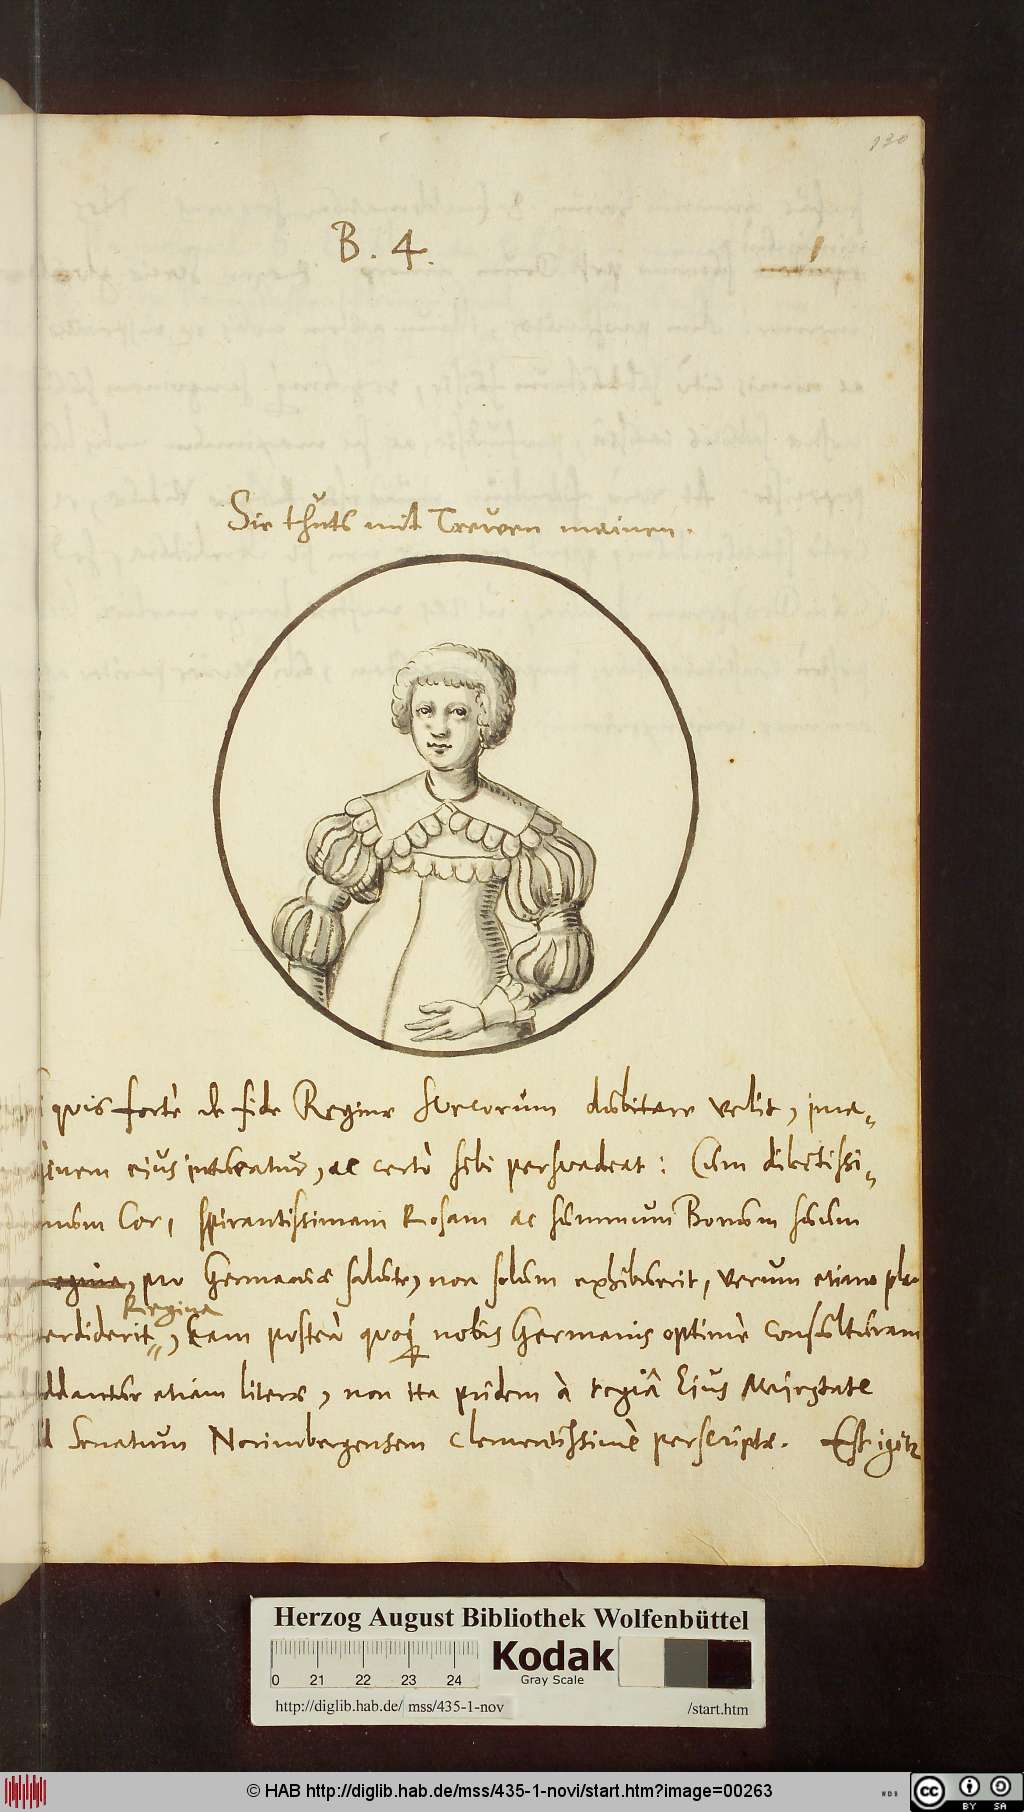 130
B. 4.
Sie thuts mit Trewen mainen.
quis fortè de fide Reginæ Suecorum dubitare velit, ima-
inem ejus intueatur, ac certò sibi persuadeat: Cum dilectissi-
mum Cor, spirantissimam Rosam ac summum Bonum suum
pro Germaniæ salute, non solum exhibuerit, verum etiam pla-
Regina
erdiderit, Eam posteà quoq nobis Germanis optimè consulturam
ddantur etiam literæ, non ita pridem à regiâ Ejus Majestate
d Senatum Norimbergensem clementissimè perscriptæ. Est igitur
Herzog August Bibliothek Wolfenbüttel
0 21 22 23 24
Kodak
Gray Scale
http://diglib.hab.de/ mss/435-1-nov /start.htm
© HAB http://diglib.hab.de/mss/435-1-novi/start.htm?image=00263
WDB
cc BY SA